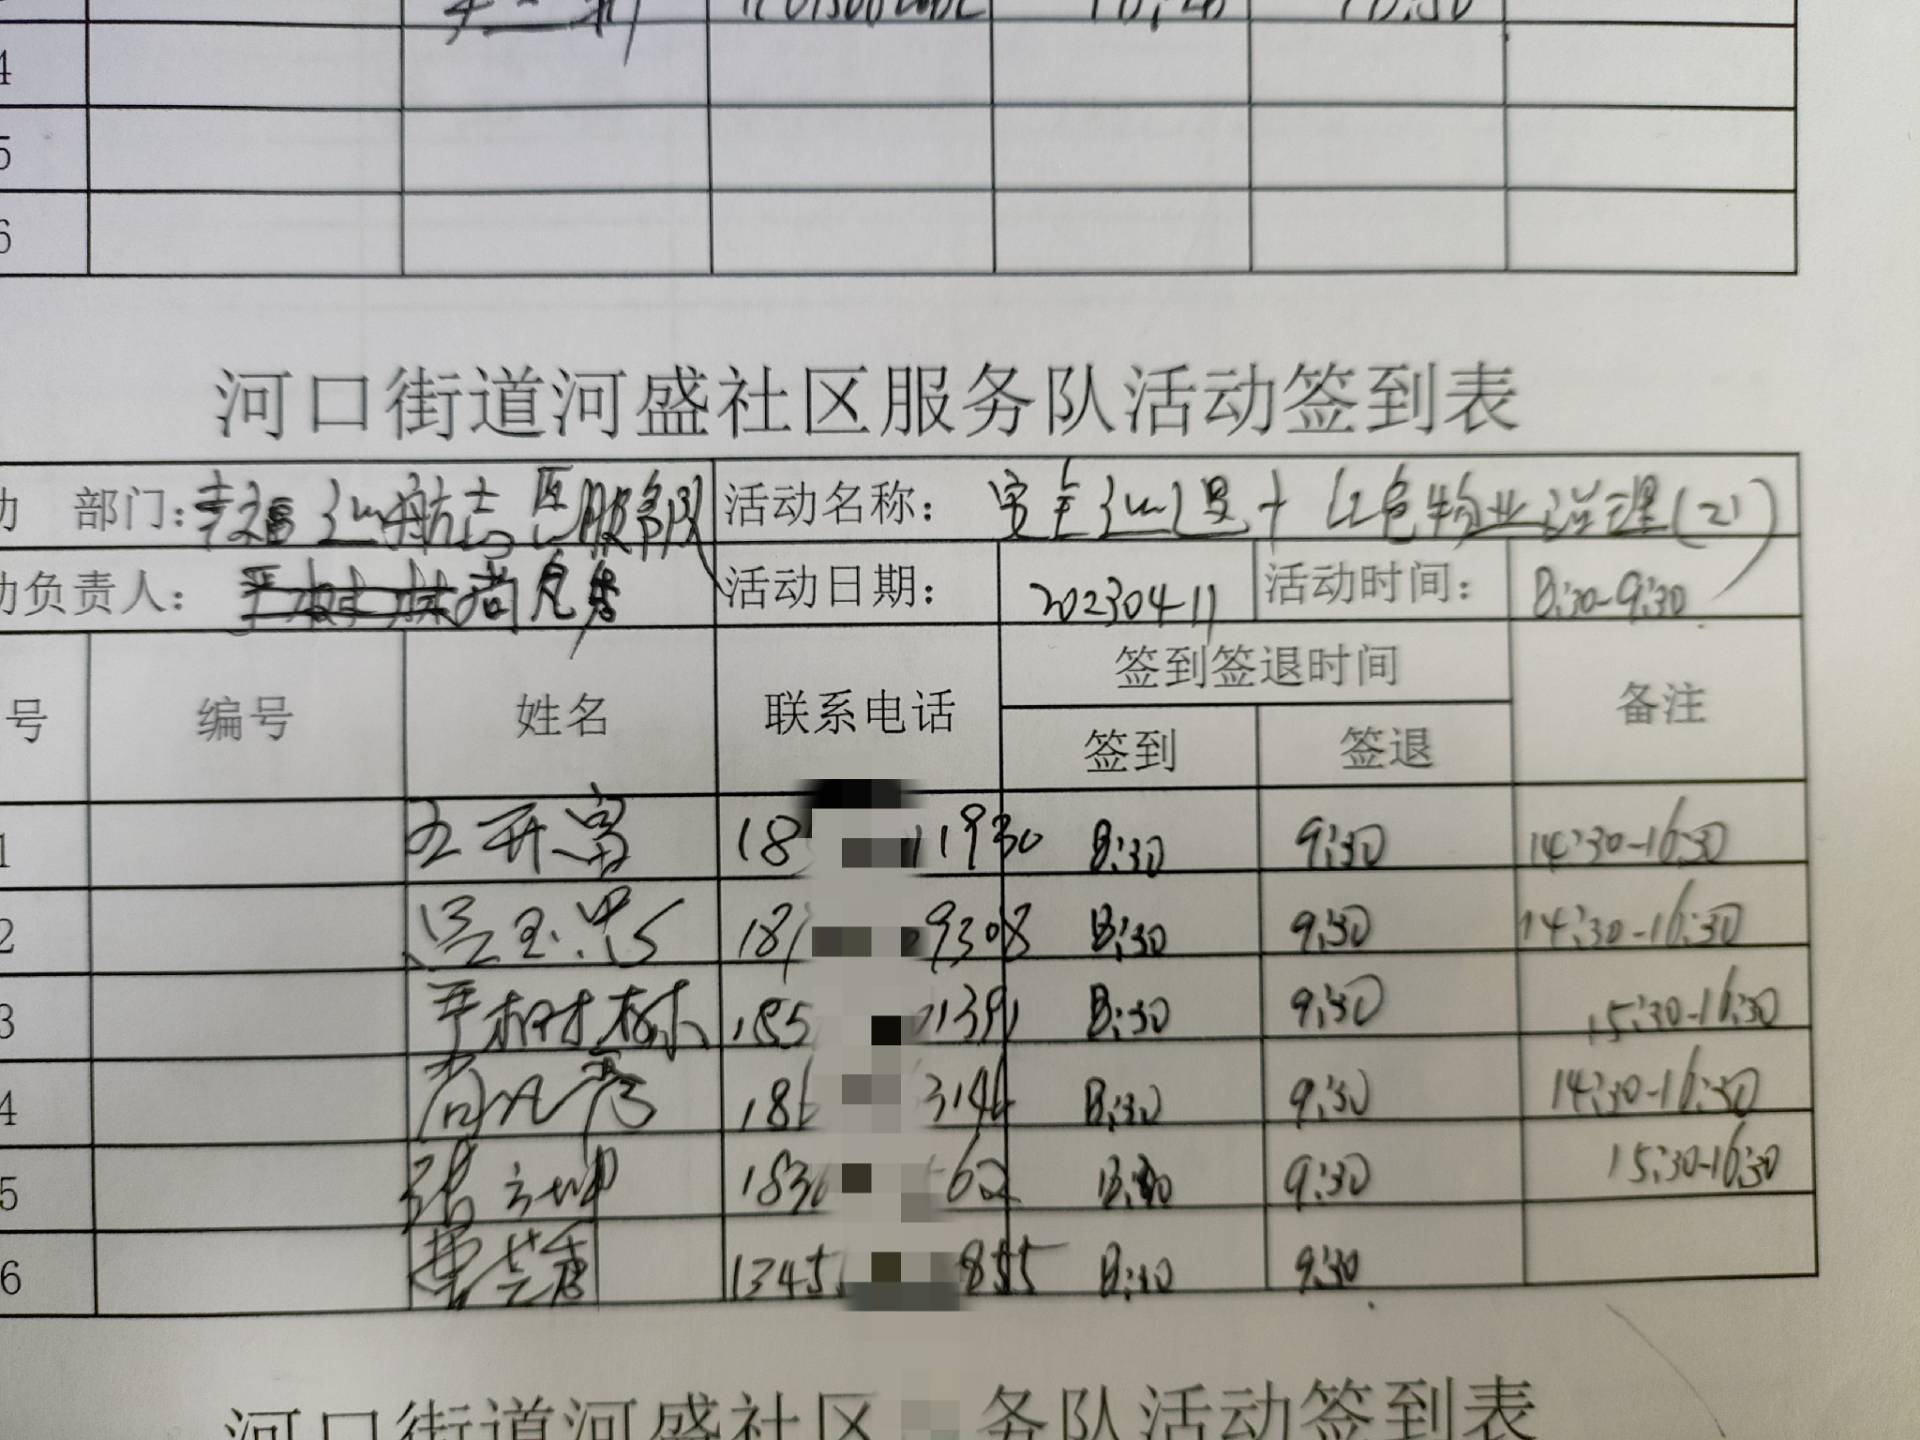 4
5
6
河口街道河盛社区服务队活动签到表
部门：幸福巡航志愿服务队 活动名称：安全巡逻+红色物业巡逻(2)
负责人： 尚凡秀 活动日期： 202304-11 活动时间： 8:30-9:30
号 编号 姓名 联系电话 签到签退时间 备注
签到 签退
1 王开富 18 11930 8:30 9:30 14:30-16:30
2 18 9308 8:30 9:30 14:30-16:30
3 严树林 185 1391 8:30 9:30 15:30-16:30
4 尚凡秀 186 3146 8:30 9:30 14:30-16:30
5 183 62 8:30 9:30 15:30-16:30
6 1345 855 8:30 9:30
河口街道河盛社区 务队活动签到表